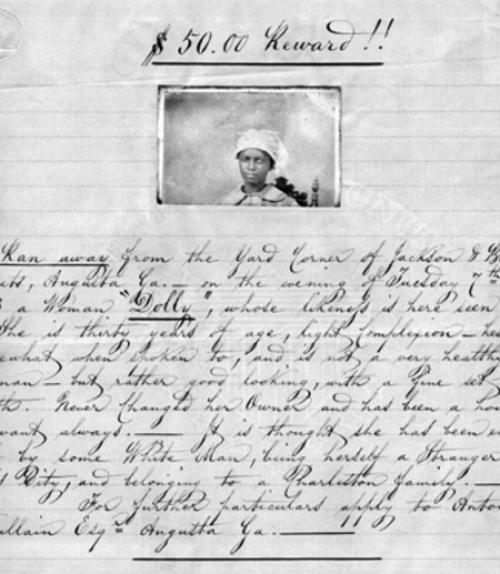 $50.00 Reward!!
Ran away from the Yard Corner of Jackson &
Augusta Ga. — on the evening of Tuesday 7th
a Woman "Dolly", whose likeness is here seen
She is thirty years of age, light Complexion — hes
ewhat when spoken to, and is not a very health
man — but rather good looking, with a fine set
th. Never Changed her Owner and has been a ho
vant always. — It is thought she has been e
by some White Man, being herself a Stranger
City, and belonging to a Charleston family. —
For further particulars apply to Anto
Esqr Augusta Ga. —